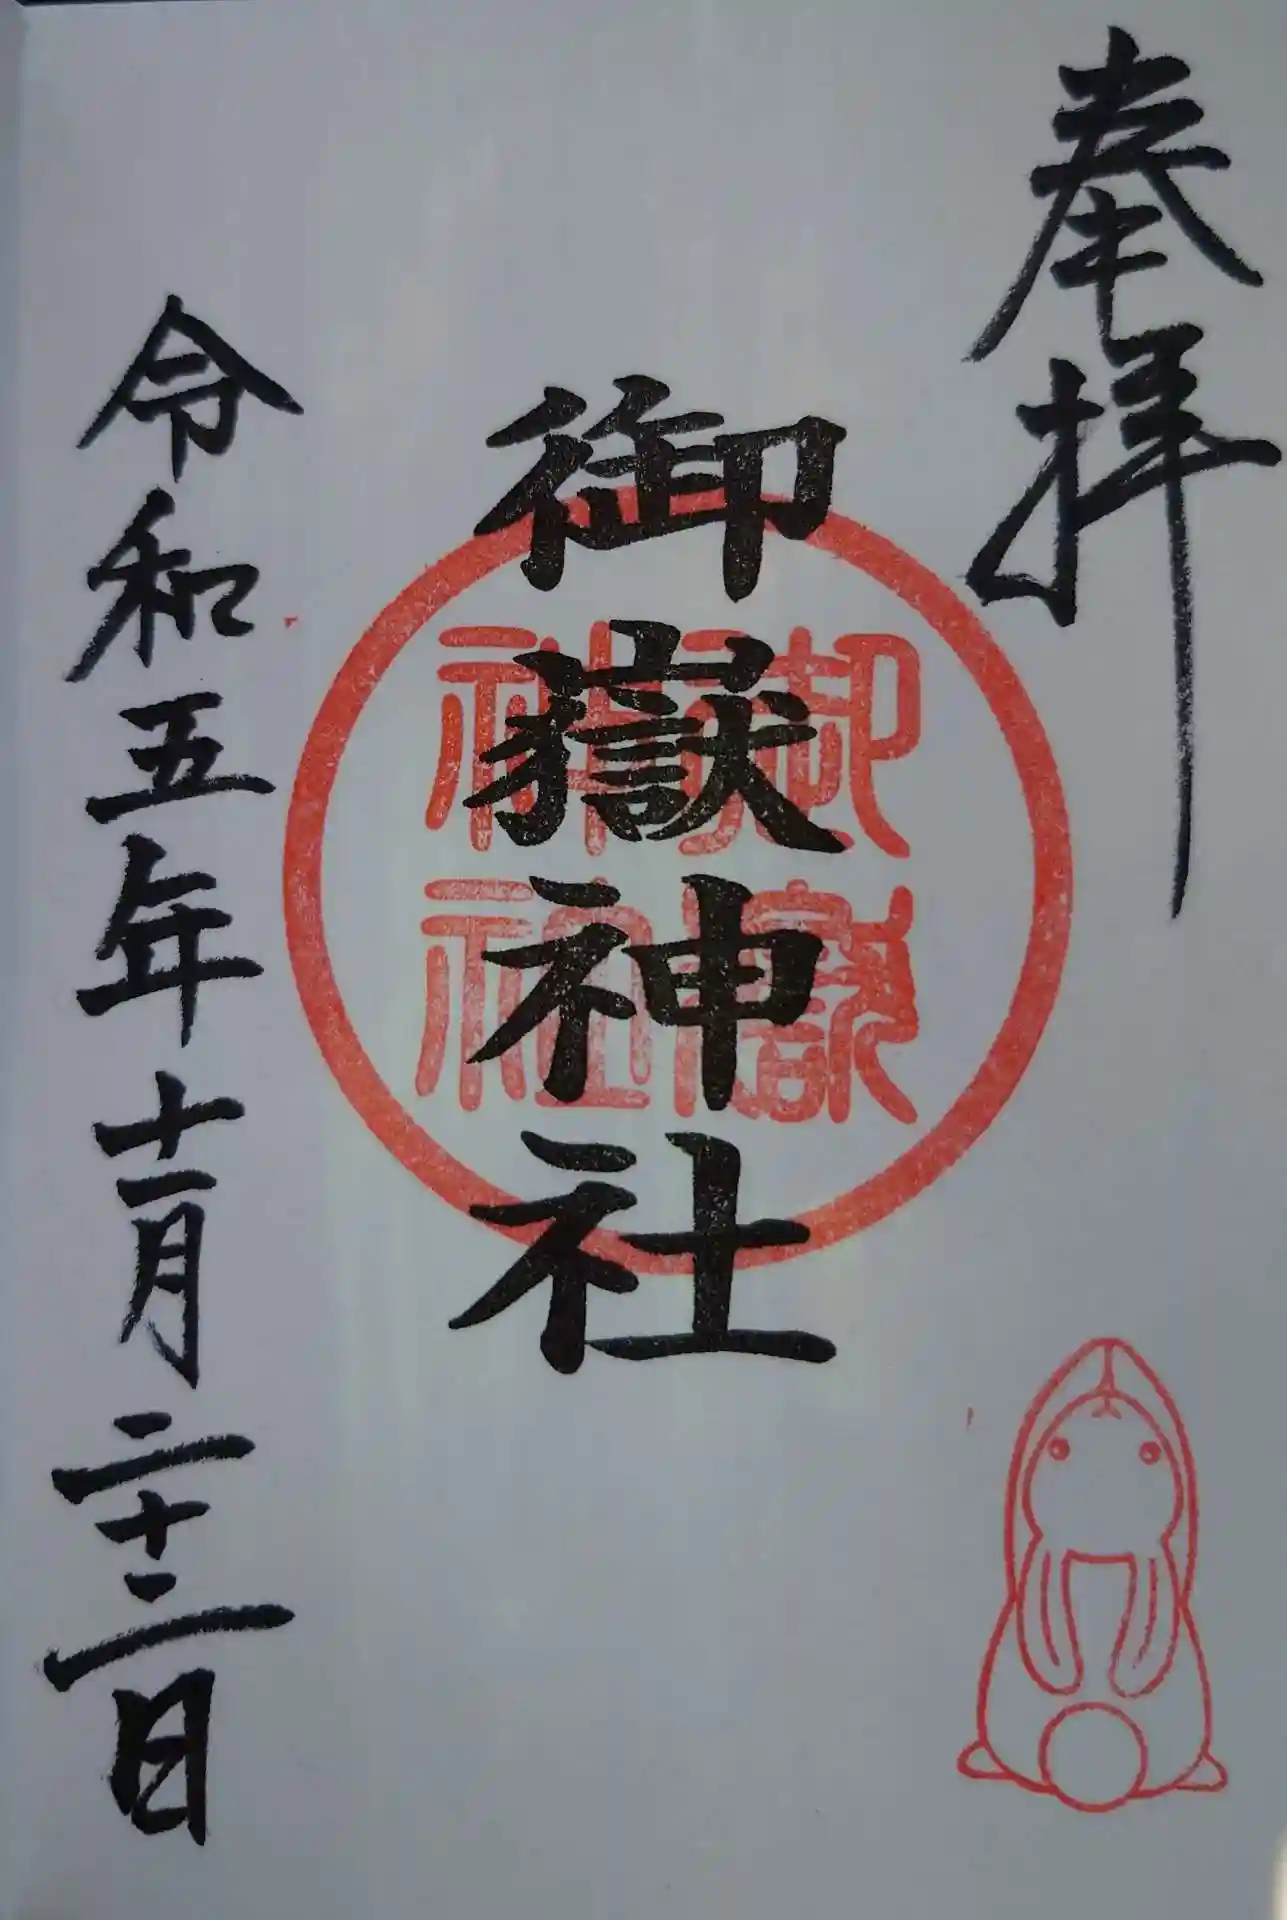 奉拝
御嶽神社
御嶽神社
令和五年十一月二十三日